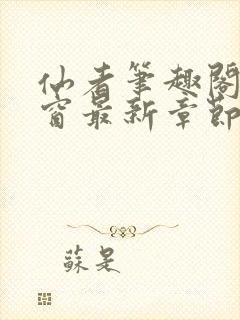 仙者筆趣閣
窗最新章節
蘇是